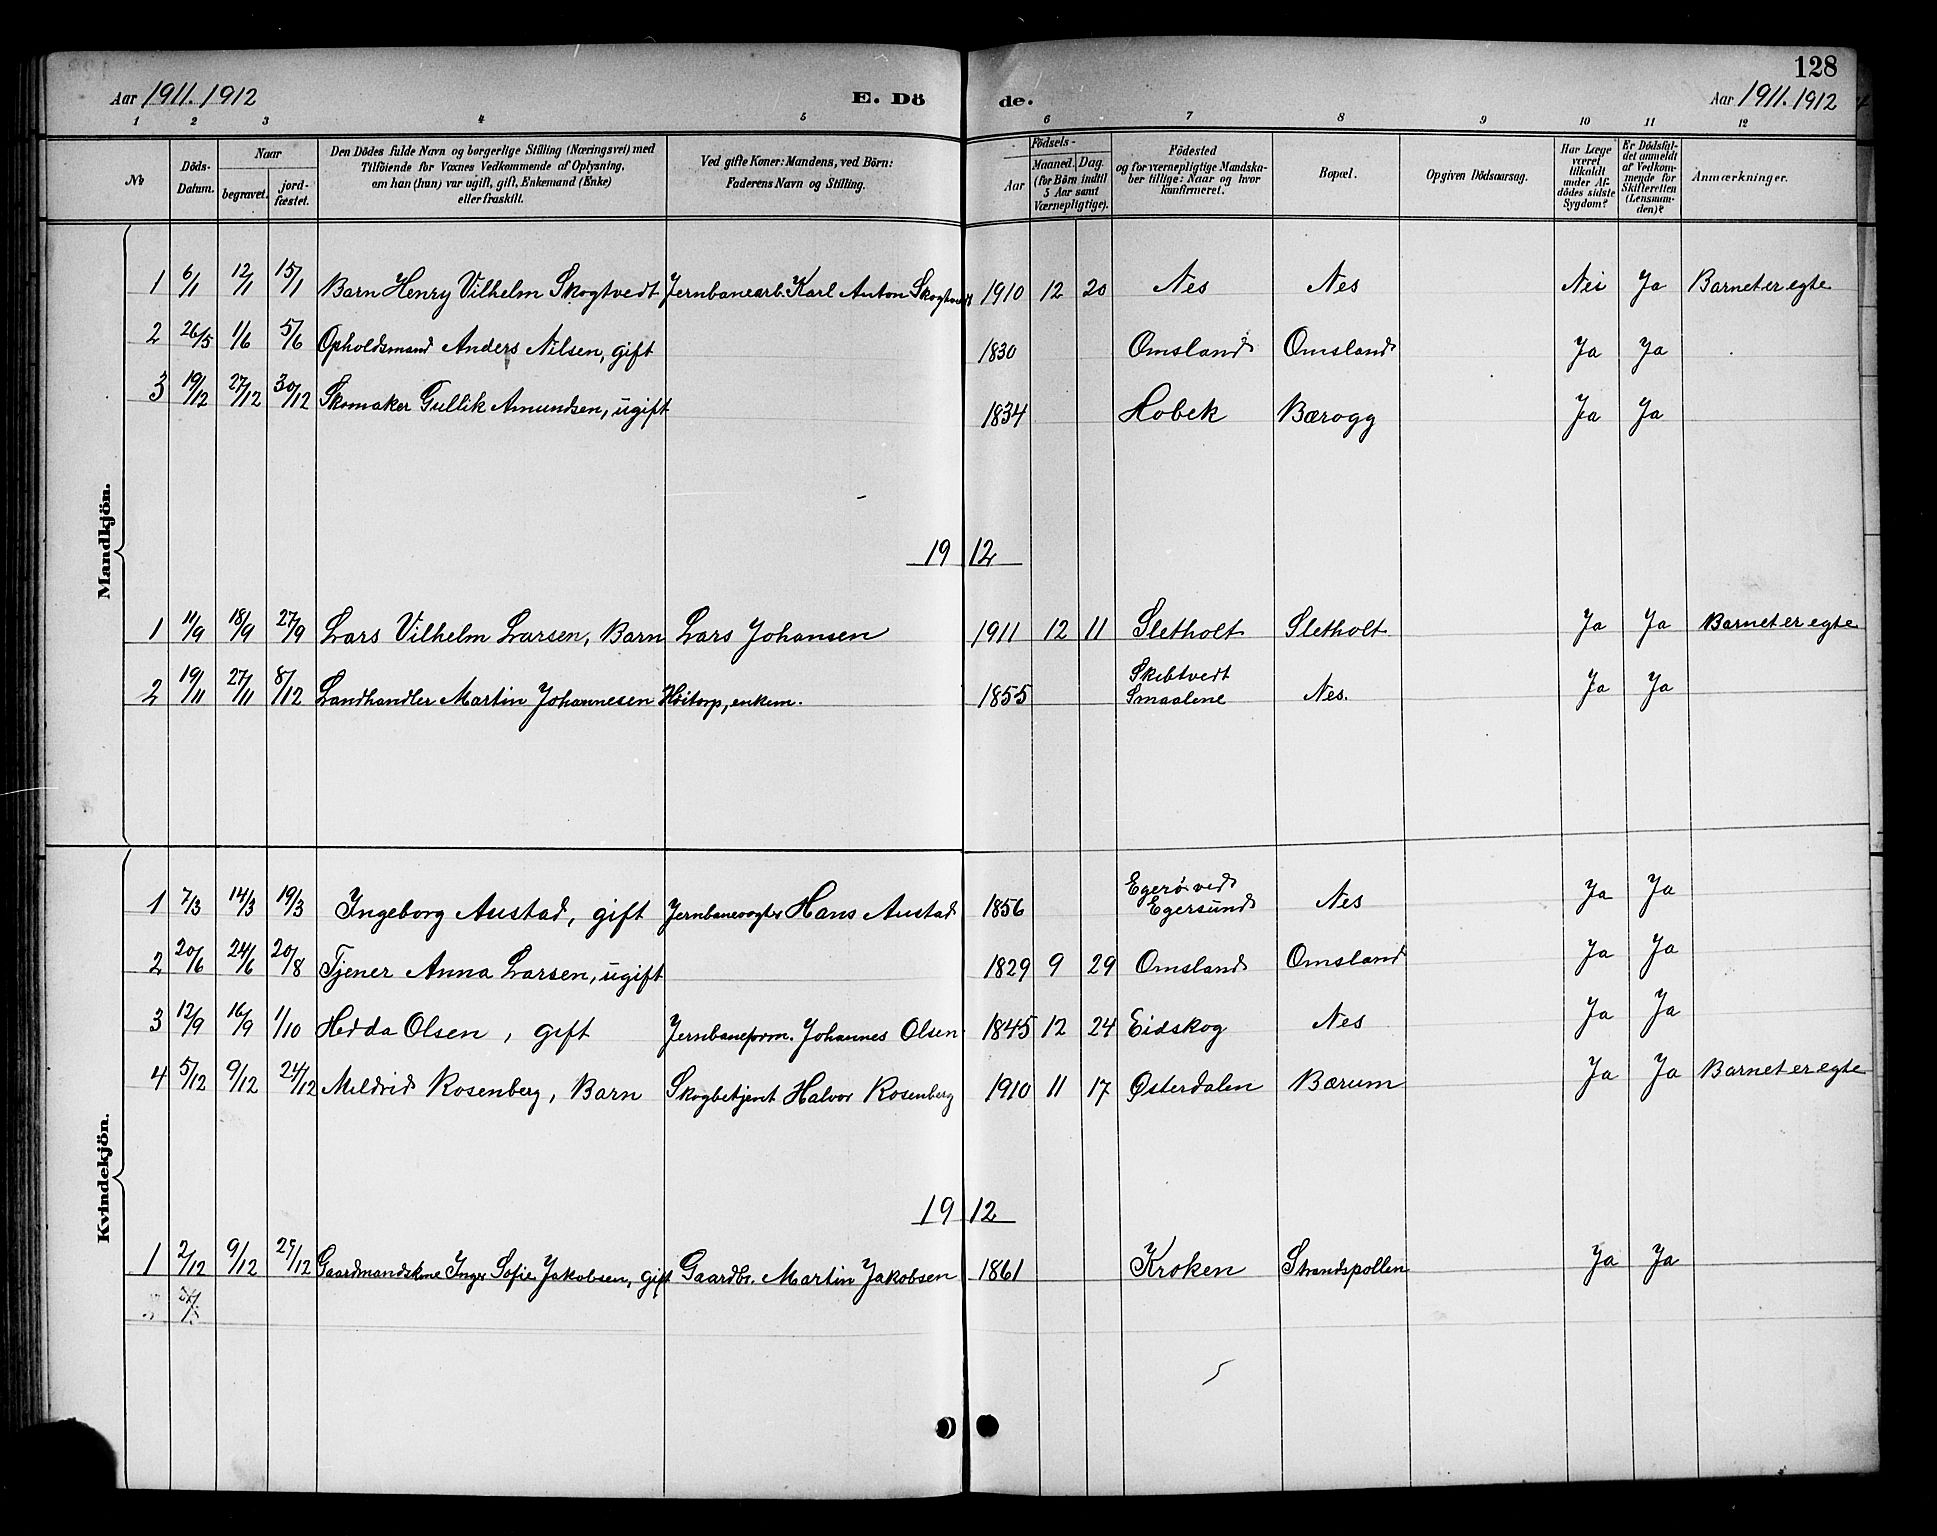 128
Aar 1911. 1912 E. Dö de. Aar 1911. 1912
1 2 3 4 5 6 7 8 9 10 11 12
No
Döds-Datum.
Naar
begravet.
jord-fæstet.
Den Dödes fulde Navn og borgerlige Stilling (Næringsvei) med
Tilföiende for Voxnes Vedkommende af Oplysning,
om han (hun) var ugift, gift, Enkemand (Enke)
eller fraskilt.
Ved gifte Koner: Mandens, ved Börn:
Faderens Navn og Stilling.
Födsels-
Aar
Maaned. Dag.
(for Börn indtil
5 Aar samt
Værnepligtige).
Födested
og for værnepligtige Mandska-
ber tillige: Naar og hvor
konfirmeret.
Bopæl.
Opgiven Dödsaarsag.
Har Læge
været
tilkaldt
under Af-
dödes sidste
Sygdom?
Er Dödsfal-
det anmeldt
af Vedkom-
mende for
Skifteretten
(Lensman-
den)?
Anmærkninger.
Mandkjön.
1 6/1 12/1 15/1 Barn Henry Vilhelm Skogtvedt Jernbanearb. Karl Anton Skogtvedt 1910 12 20 Nes Nes Nei Ja Barnet er egte
2 26/5 1/6 5/6 Opholdsmand Anders Nilsen, gift 1830 Omsland Omsland Ja Ja
3 19/12 27/12 30/12 Skomaker Gullik Amundsen, ugift 1834 Hobek Bærogg Ja Ja
19 12
1 11/9 18/9 27/9 Lars Vilhelm Larsen, Barn Lars Johansen 1911 12 11 Sletholt Sletholt Ja Ja Barnet er egte
2 19/11 27/11 8/12 Landhandler Martin Johannesen Høitorp, enkem. 1855 Skibtvedt
Smaalene Nes. Ja Ja
Kvindekjön.
1 7/3 14/3 19/3 Ingeborg Austad, gift Jernbanevogter Hans Austad 1856 Egerö ved
Egersund Nes Ja Ja
2 20/6 24/6 20/8 Tjener Anna Larsen, ugift 1829 9 29 Omsland Omsland Ja Ja
3 12/9 16/9 1/10 Hedda Olsen, gift Jernbaneform. Johannes Olsen 1845 12 24 Eidskog Nes Ja Ja
4 5/12 9/12 24/12 Mildrid Rosenberg, Barn Skogbetjent Halvor Rosenberg 1910 11 17 Østerdalen Bærum Ja Ja Barnet er egte
19 12
1 2/12 9/12 29/12 Gaardmandskone Inger Sofie Jakobsen, gift Gaardbr. Martin Jakobsen 1861 Kroken Strandspollen Ja Ja